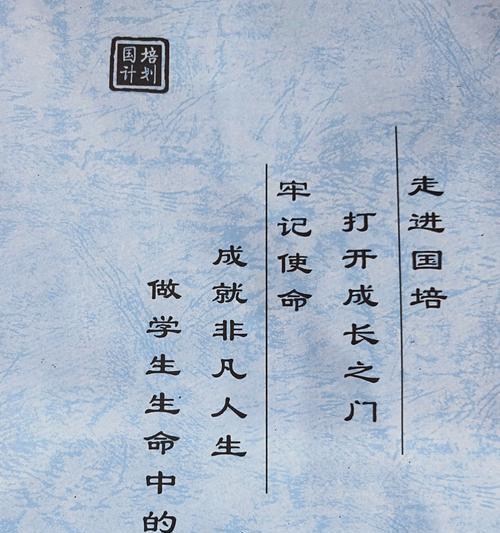 走进国培
打开成长之门
牢记使命
成就非凡人生
做学生生命中的
国培
计划